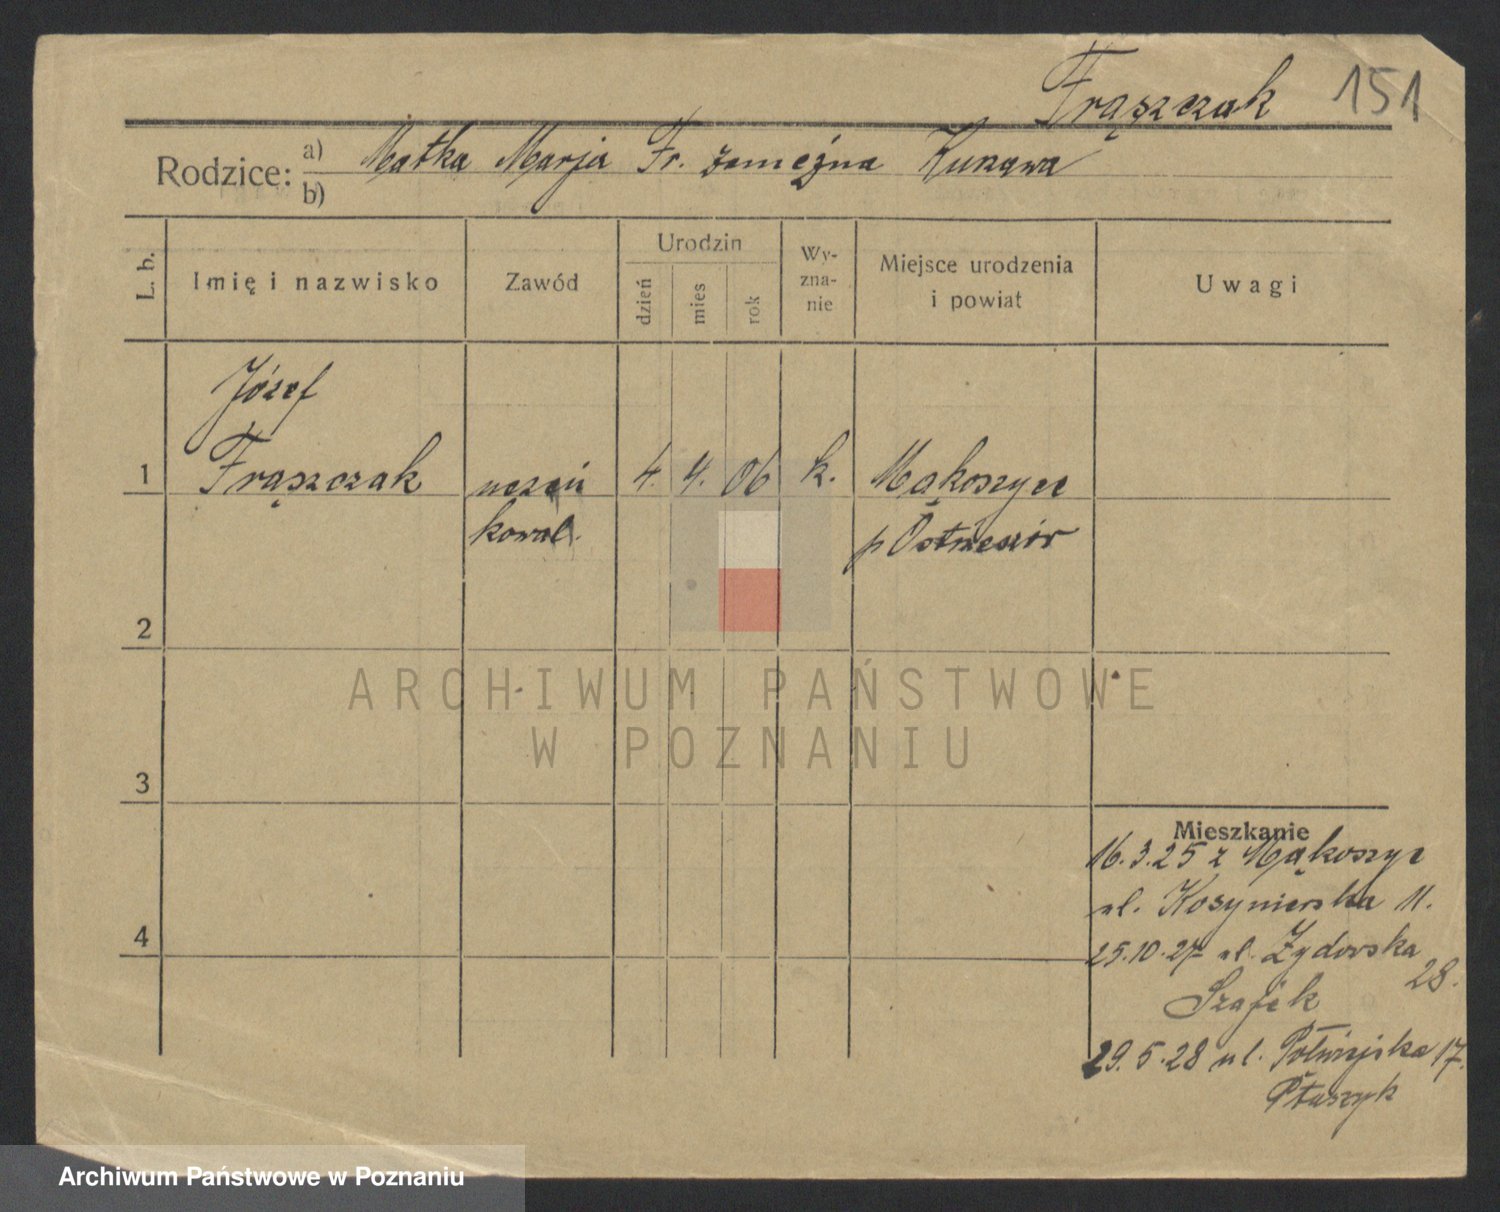 Frąszczak 151
Rodzice: a) Matka Marja Fr. zamężna
b)
L. b. Imię i nazwisko Zawód Urodzin dzień mies rok Wy-zna-nie Miejsce urodzenia i powiat Uwagi
Józef
1 Frąszczak uczeń 4. 4. 06 k. Mąkoszyce
kowal. p
2
ARCHIWUM PAŃSTWOWE
W POZNANIU
3
Mieszkanie
16.3.25 z Mąkoszyc
ul. Kosynierska 11.
4
25.10.27 ul. Żydowska
28.
Szafek
29.5.28 ul. 17.
Ptaszyk
Archiwum Państwowe w Poznaniu